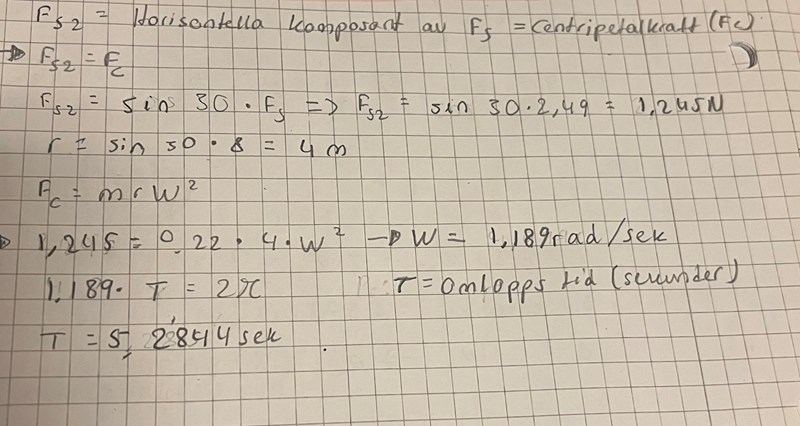 Fs2 = Horisontella komposant av Fs = Centripetalkraft (Fc)
→ Fs2 = Fc
Fs2 = sin 30 · Fs => Fs2 = sin 30 · 2,49 = 1,245N
r = sin 30 · 8 = 4 m
Fc = m r W²
→ 1,245 = 0,22 · 4 · W² → W = 1,189 rad/sek
1,189 · T = 2π T = Omlopps tid (sekunder)
T = 5,2844 sek